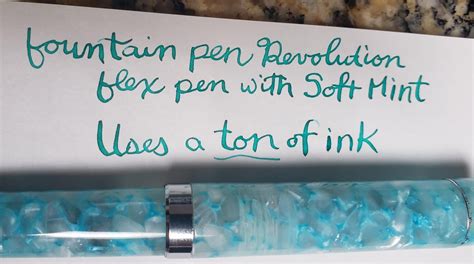 fountain pen Revolution
flex pen with Soft Mint
Uses a ton of ink